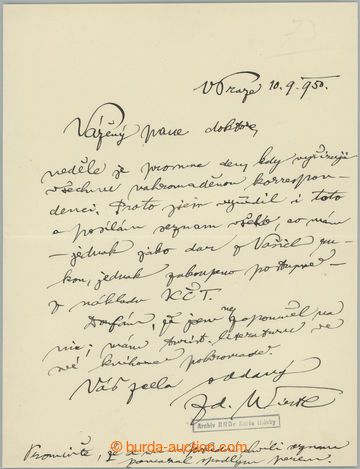 V Praze 10.9.1950.
Vážený pane doktore,
neděle je pro mne den, kdy vyřizuji
všechnu nahromaděnou korrespon-
denci. Proto jsem vyřídil i toto
a posílám seznam všeho, co mám
- jednak jako dar z Vašich ru-
kou, jednak zakoupeno postupně -
z nákladu KČT.
Doufám, že jsem nezapomněl na
nic; mám turist. literaturu ve
své knihovně pohromadě.
Váš zcela oddaný
Zd.
Archiv RNDr Karla
Promiňte, že
© burda-auction.com
seznam
perem.